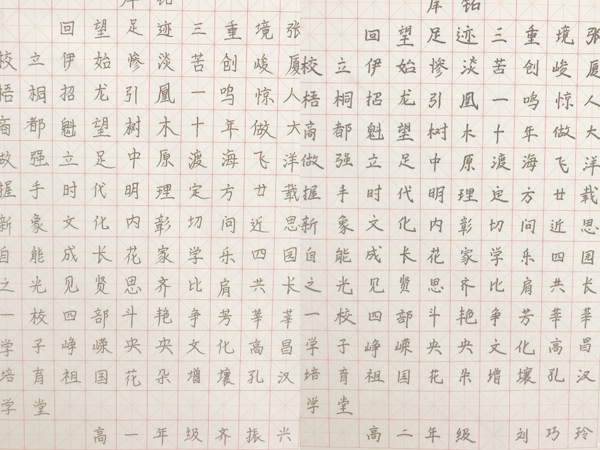 回望足迹三重境张
校立伊始惨淡苦创峻厦
梧桐招龙引凰一鸣惊人
商都魁望树木十年做大
做强立足中原渡海飞洋
握手时代明理定方廿载
新象文化内彰切问近思
自能成长花家学乐四园
之光见贤思齐比肩共长
一校四部斗艳争芳莘莘
学子峥嵘央央文化高昌
培育祖国花朵增壤孔汉
学堂
高一年级齐振兴
回望足迹三重境张
校立伊始惨淡苦创峻厦
梧桐招龙引凰一鸣惊人
高都魁望树木十年做大
做强立足中原渡海飞洋
握手时代明理定方廿载
新象文化内彰切问近思
自能成长花家学乐四园
之光见贤思齐比肩共长
一校四部斗艳争芳莘莘
学子峥嵘央央文化高昌
培育祖国花朵增壤孔汉
学堂
高二年级 刘巧玲